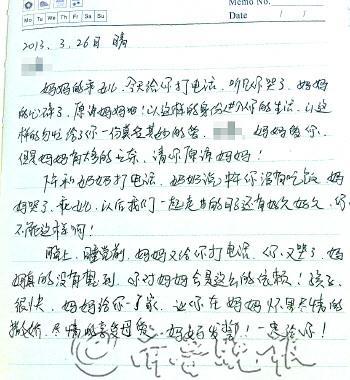 Memo No.
Mo Tu We Th Fr Sa Su
Date / /
2013.3.26日 晴
妈妈的 今天给你打电话,听见你哭了,妈妈
的心碎了,原谅妈妈吧!以这样的身份进入你的生活,以这
样的 给了你一份真真 的爱, 妈妈爱你,
但是妈妈有太多的 ,请你原谅妈妈!
下午和奶奶打电话,奶奶说 你没有吃饭,妈妈
哭了, 以后我们一起走 的日子还有好久好久,你
不能这样啊!
晚上,睡觉前,妈妈又给你打电话,你又哭了,妈
妈真的没有想到,你对妈妈会是这么的依赖!孩子,
很快,妈妈给你一个家,让你在妈妈怀里尽情的
撒娇,尽情的享受母爱,妈妈发誓!一定给你!